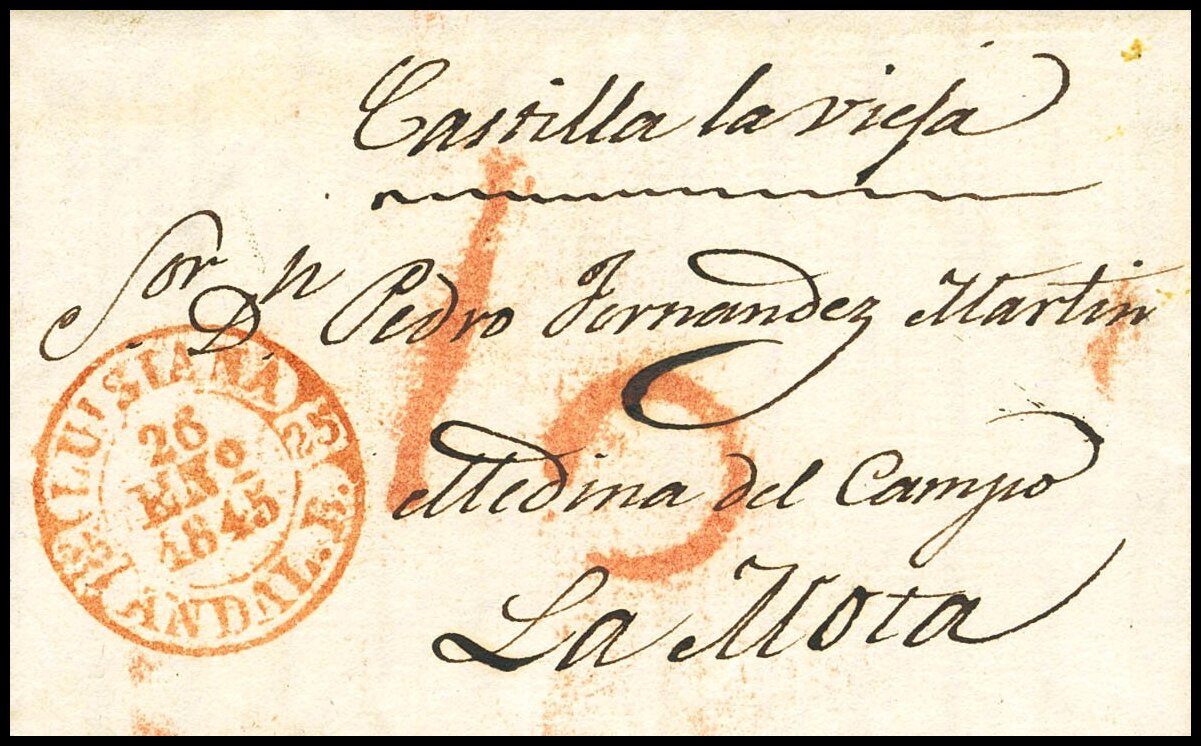 Castilla la vieja
Sor. D.n Pedro Fernandez Martin
Medina del Campo
La Mota
LUISIANA
26
EN.o
1845
ANDAL. B.